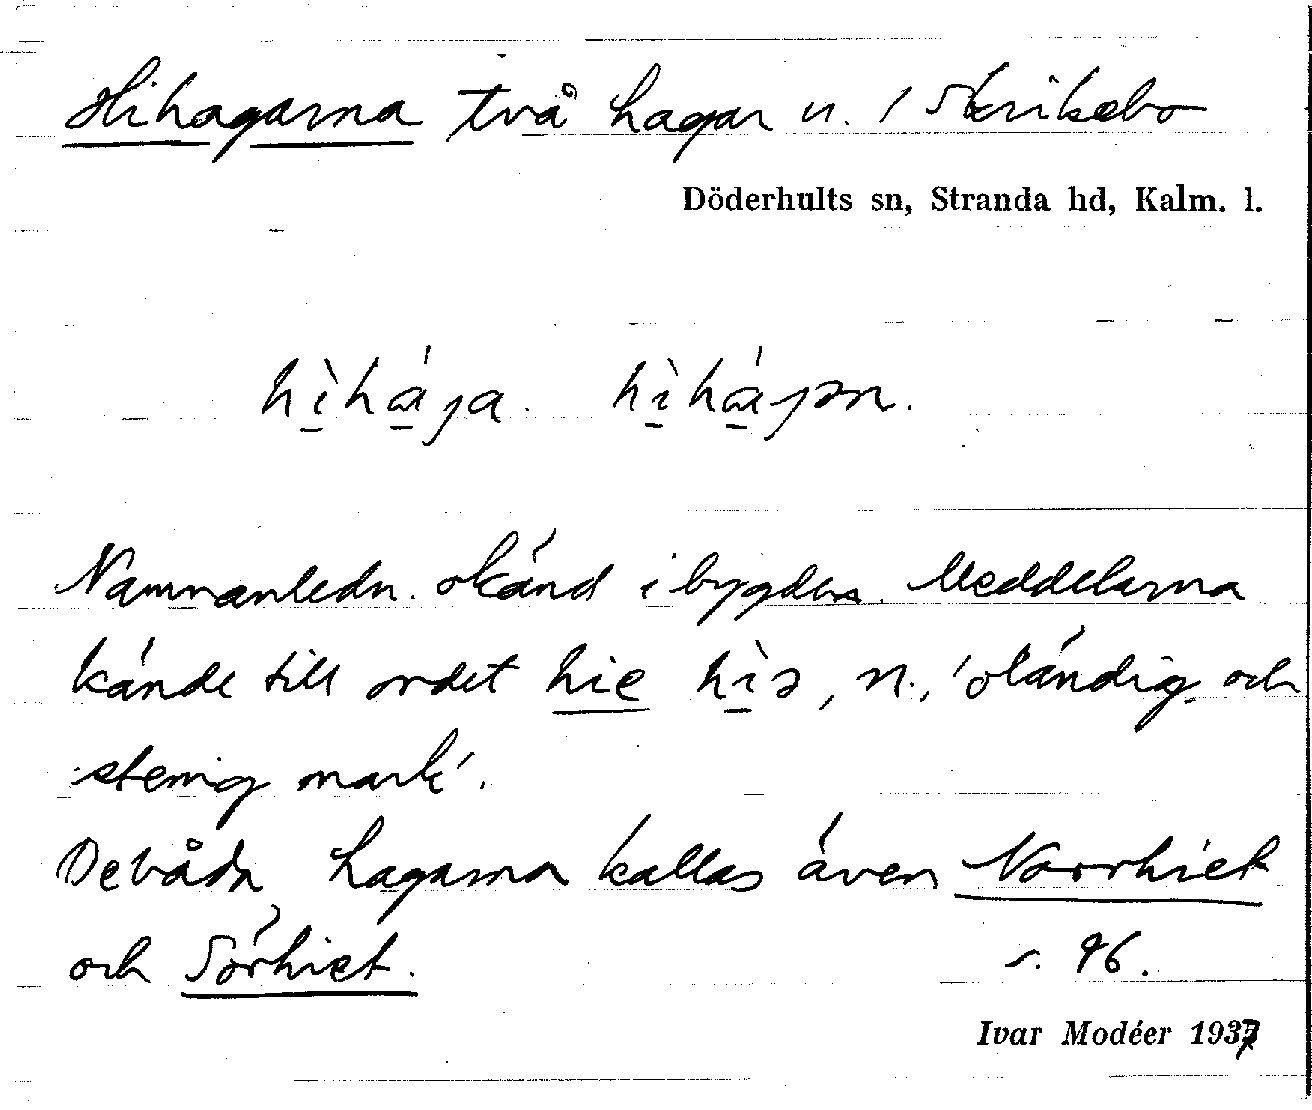 Hihagarna två hagar u. 1 Skrikebo
Döderhults sn, Stranda hd, Kalm. l.
hìhága. hìhágən.
Namnanledn. okänd i bygden. Meddelarna
kände till ordet hie hìə, n., 'oländig och
stenig mark'.
De båda hagarna kallas även Norrhiet
och Sörhiet. s. 96.
Ivar Modéer 1937